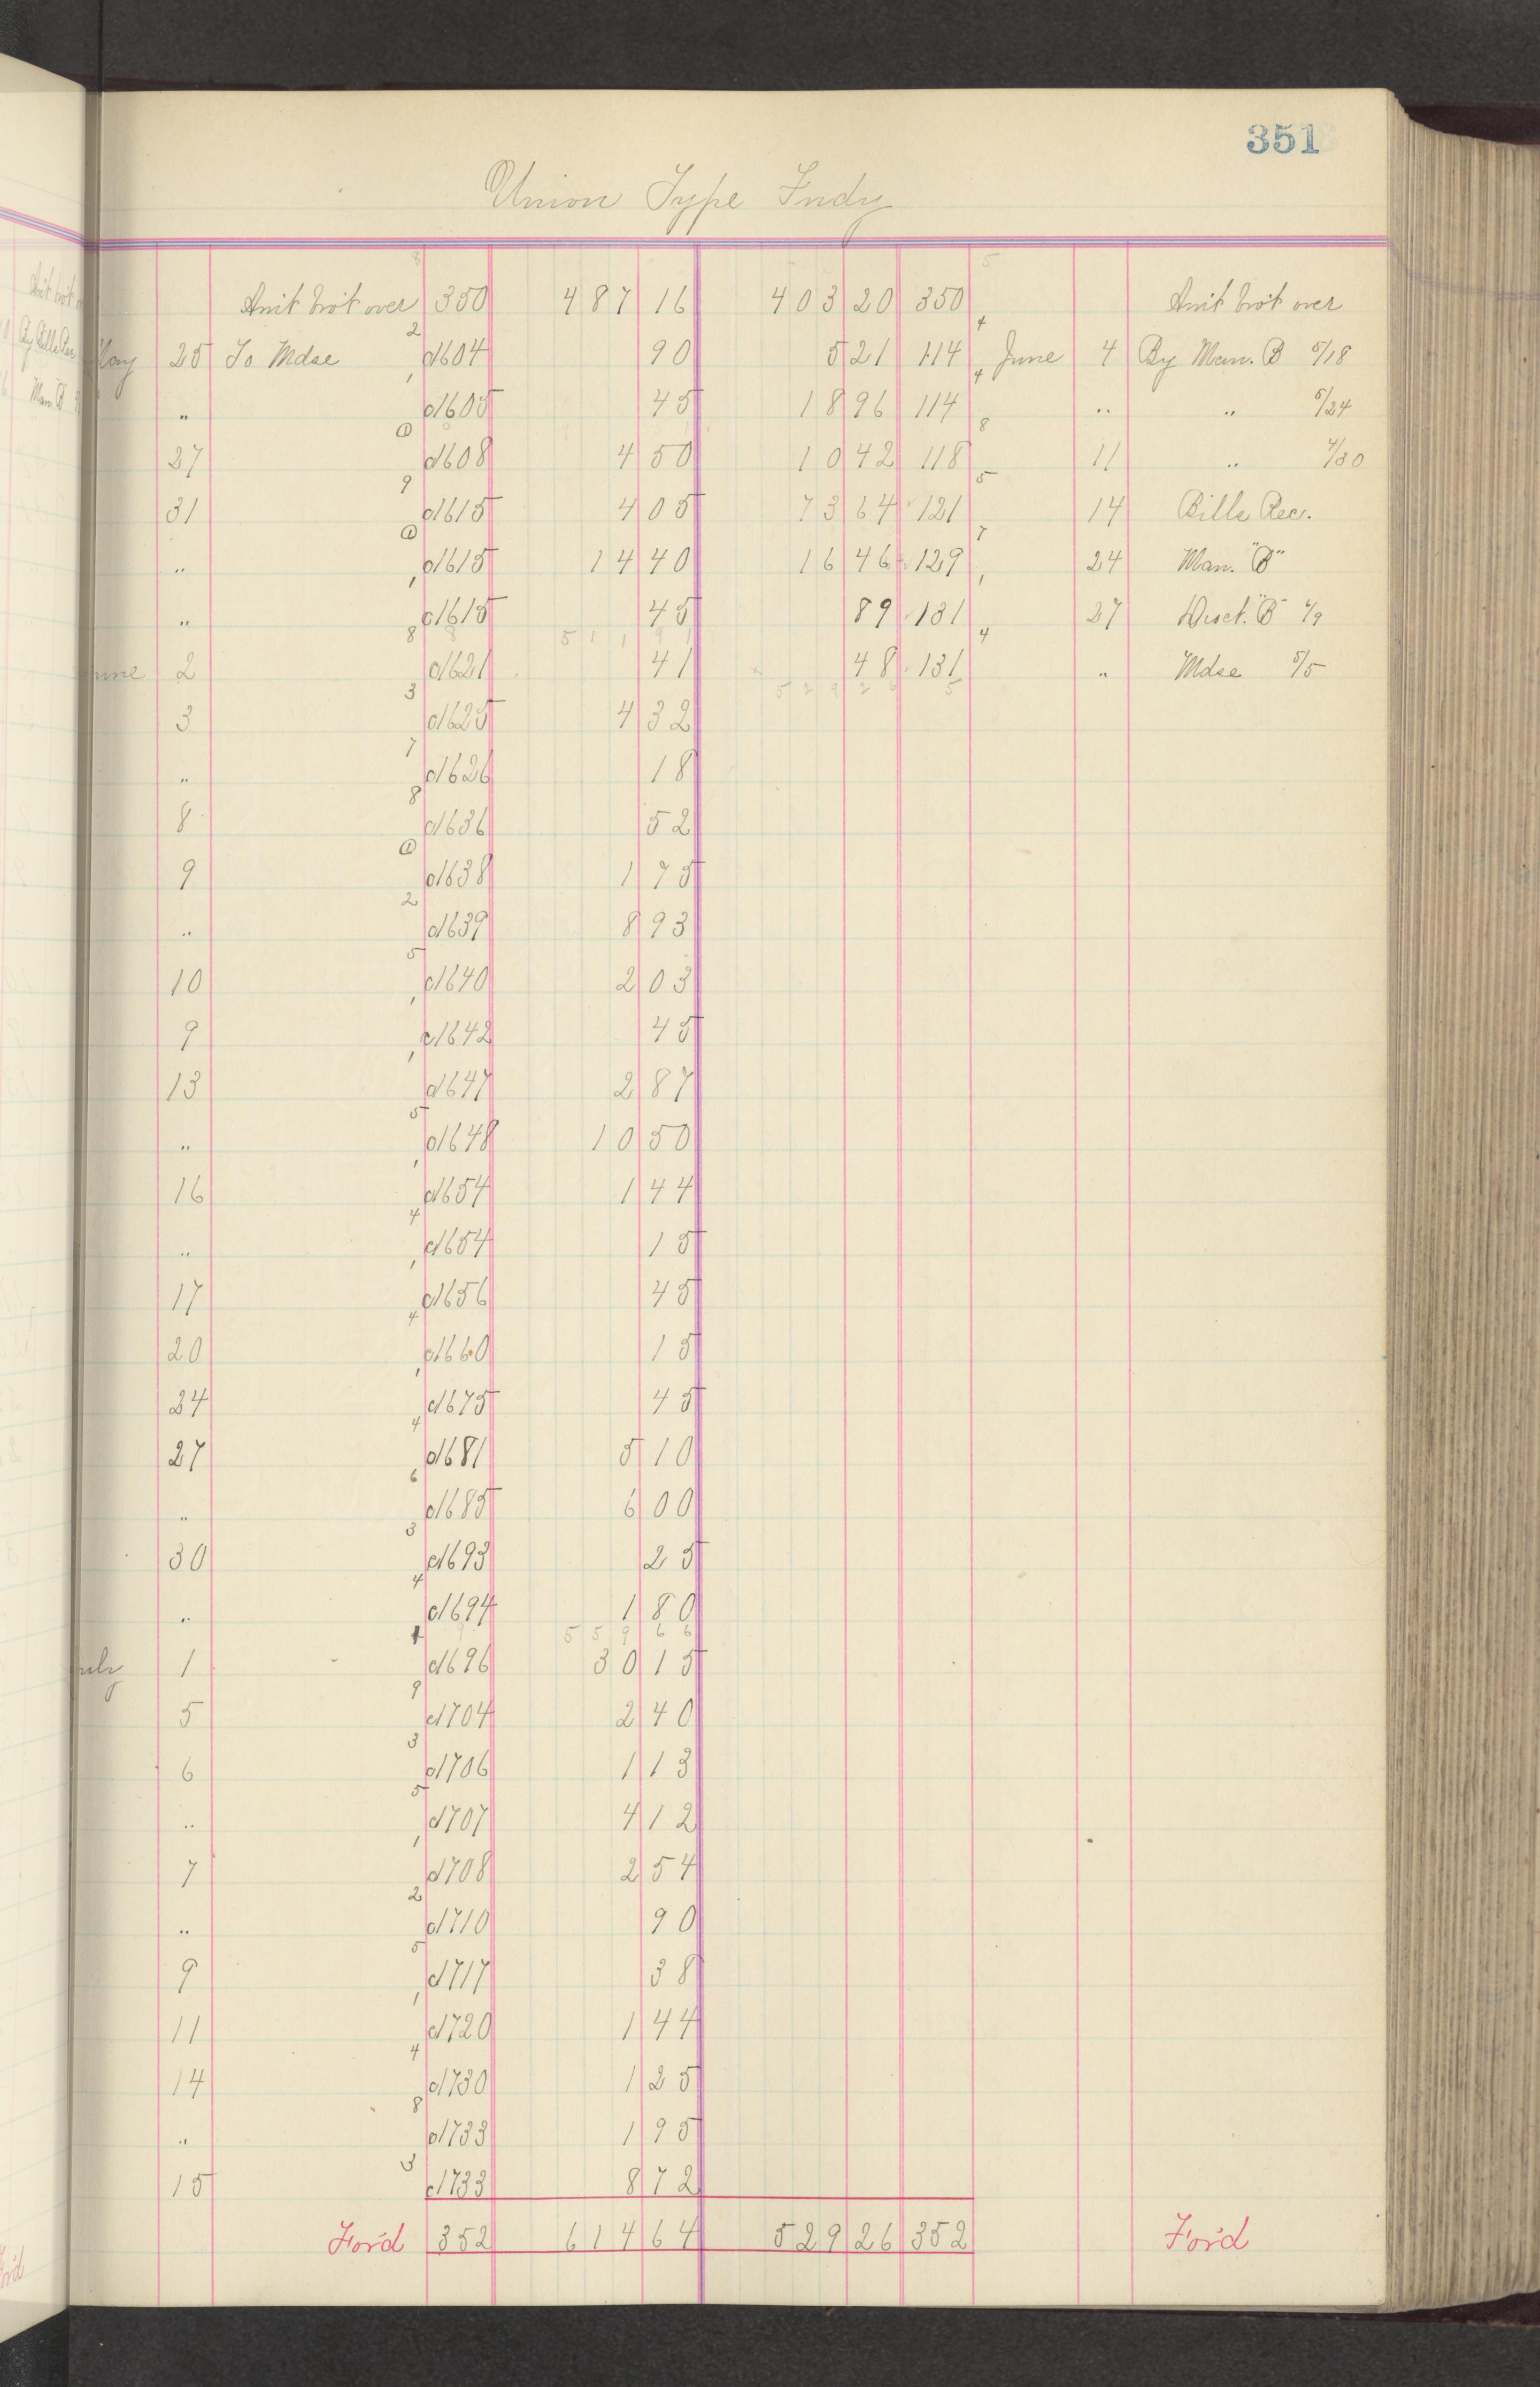 351
Union Type Fndy
Amt brot over 350 487 16 403 20 350 Amt brot over
May 25 To Mdse 2 d604 90 5 21 114 4 June 4 By Man. B 5/18
" 1 d605 45 18 96 114 4 " " 5/24
27 @ d608 4 50 10 42 118 8 11 " 4/30
31 9 d615 4 05 73 64 121 5 14 Bills Rec.
" @ d615 14 40 16 46 129 7 24 Man. "B"
" 1 d615 45 89 131 1 27 Disct. "B" 6/9
5 1 1 9 1
June 2 8 d621 41 48 131 4 " Mdse 5/5
5 2 9 2 6
3 3 d625 4 32
" 7 d626 18
8 8 d636 52
9 @ d638 1 75
" 2 d639 8 93
10 5 d640 2 03
9 1 d642 45
13 1 d647 2 87
" 5 d648 10 50
16 1 d654 1 44
" 4 d654 15
17 1 d656 45
20 4 d660 15
24 1 d675 45
27 4 d681 5 10
" 6 d685 6 00
30 3 d693 25
" 4 d694 1 80
5 5 9 6 6
July 1 1 d696 30 15
5 9 d704 2 40
6 3 d706 1 13
" 5 d707 4 12
7 1 d708 2 54
" 2 d710 90
9 5 d717 38
11 1 d720 1 44
14 4 d730 1 25
" 8 d733 1 95
15 3 d733 8 72
For'd 352 614 64 529 26 352 For'd